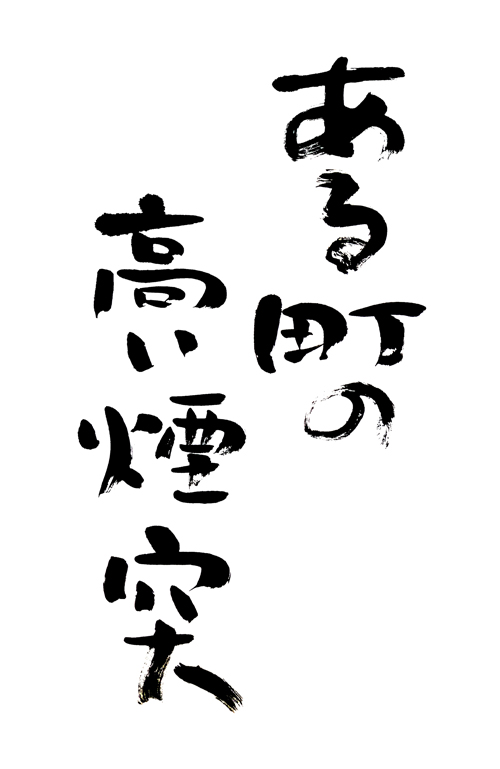 ある町の
高い煙突